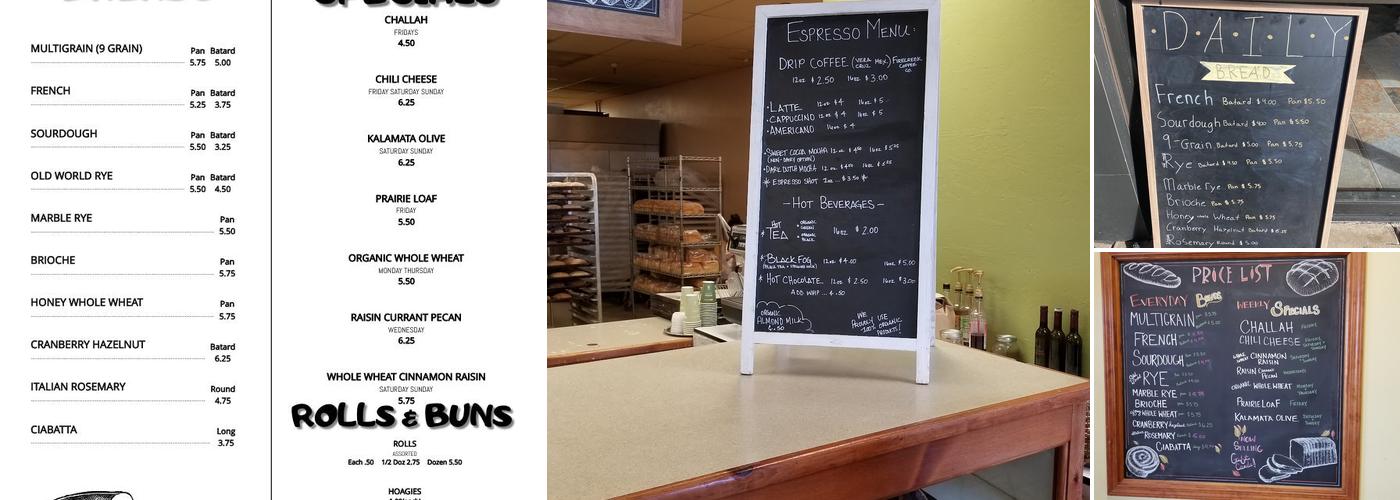 MULTIGRAIN (9 GRAIN) Pan Batard
5.75 5.00
FRENCH Pan Batard
5.25 3.75
SOURDOUGH Pan Batard
5.50 3.25
OLD WORLD RYE Pan Batard
5.50 4.50
MARBLE RYE Pan
5.50
BRIOCHE Pan
5.75
HONEY WHOLE WHEAT Pan
5.75
CRANBERRY HAZELNUT Batard
6.25
ITALIAN ROSEMARY Round
4.75
CIABATTA Long
3.75
SPECIALS
CHALLAH
FRIDAYS
4.50
CHILI CHEESE
FRIDAY SATURDAY SUNDAY
6.25
KALAMATA OLIVE
SATURDAY SUNDAY
6.25
PRAIRIE LOAF
FRIDAY
5.50
ORGANIC WHOLE WHEAT
MONDAY THURSDAY
5.50
RAISIN CURRANT PECAN
WEDNESDAY
6.25
WHOLE WHEAT CINNAMON RAISIN
SATURDAY SUNDAY
5.75
ROLLS & BUNS
ROLLS
ASSORTED
Each .50 1/2 Doz 2.75 Dozen 5.50
HOAGIES
ESPRESSO MENU:
DRIP COFFEE (VERA CRUZ, MEX.) FIRECREEK COFFEE CO.
12oz $2.50 16oz $3.00
•LATTE 12oz $4 16oz $5
•CAPPUCCINO 12oz $4 16oz $5
•AMERICANO 16oz $4
•SWEET COCOA MOCHA 12oz 16oz
(NON-DAIRY OPTION)
•DARK DUTCH MOCHA 12oz 16oz
* ESPRESSO SHOT 2oz ... $3.50 *
-HOT BEVERAGES-
* HOT TEA • ORGANIC GREEN • ORGANIC BLACK 16oz $2.00
* BLACK FOG 12oz $4.00 16oz $5.00
* HOT CHOCOLATE 12oz $2.50 16oz $3.00
ADD WHIP ... $.50
ORGANIC
ALMOND MILK
$.50
WE
PROUDLY USE
100% ORGANIC
PRODUCTS!
D·A·I·L·Y
BREADS
French Batard $4.00 Pan $5.50
Sourdough Batard $4.00 Pan $5.50
9-Grain Batard $5.00 Pan $5.75
Rye Batard $4.50 Pan $5.50
Marble Rye Pan $5.75
Brioche Pan $5.75
Honey Wheat Pan $5.75
Cranberry Hazelnut Batard $6.25
Rosemary Round $5.00
PRICE LIST
EVERYDAY
MULTIGRAIN
FRENCH
SOURDOUGH
RYE
MARBLE RYE
BRIOCHE
WHOLE WHEAT
CRANBERRY
ROSEMARY
CIABATTA
WEEKLY SPECIALS
CHALLAH
CHILI CHEESE
CINNAMON RAISIN
RAISIN PECAN
ORGANIC WHOLE WHEAT
PRAIRIE LOAF FRIDAY
KALAMATA OLIVE
NOW
SELLING